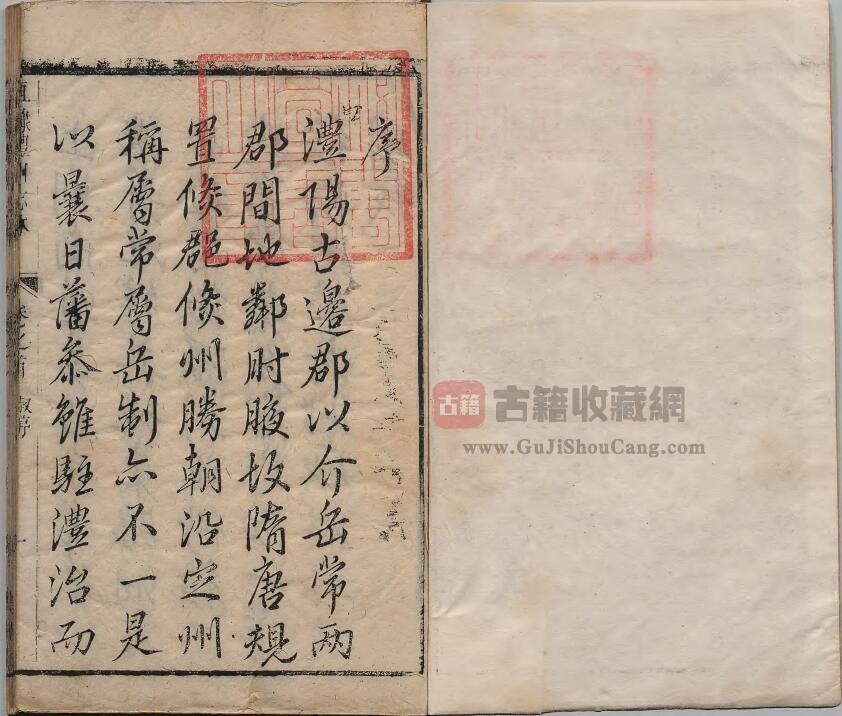 序
澧陽古邊郡以介岳常兩
郡間地鄰肘腋故隋唐規
置倐郡倐州勝朝沿定州
稱屬常屬岳制亦不一是
以曩日藩叅雖駐澧治而
卷之首
一
古籍
古籍收藏網
www.GuJiShouCang.com